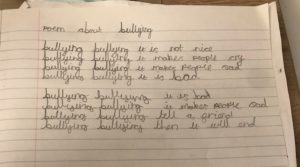 Poem about bullying
bullying bullying it is not nice
bullying bullying it makes people cry
bullying bullying it makes people sad
bullying bullying it is bad
bullying bullying it is bad
bullying bullying it makes people sad
bullying bullying tell a friend
bullying bullying then it will end